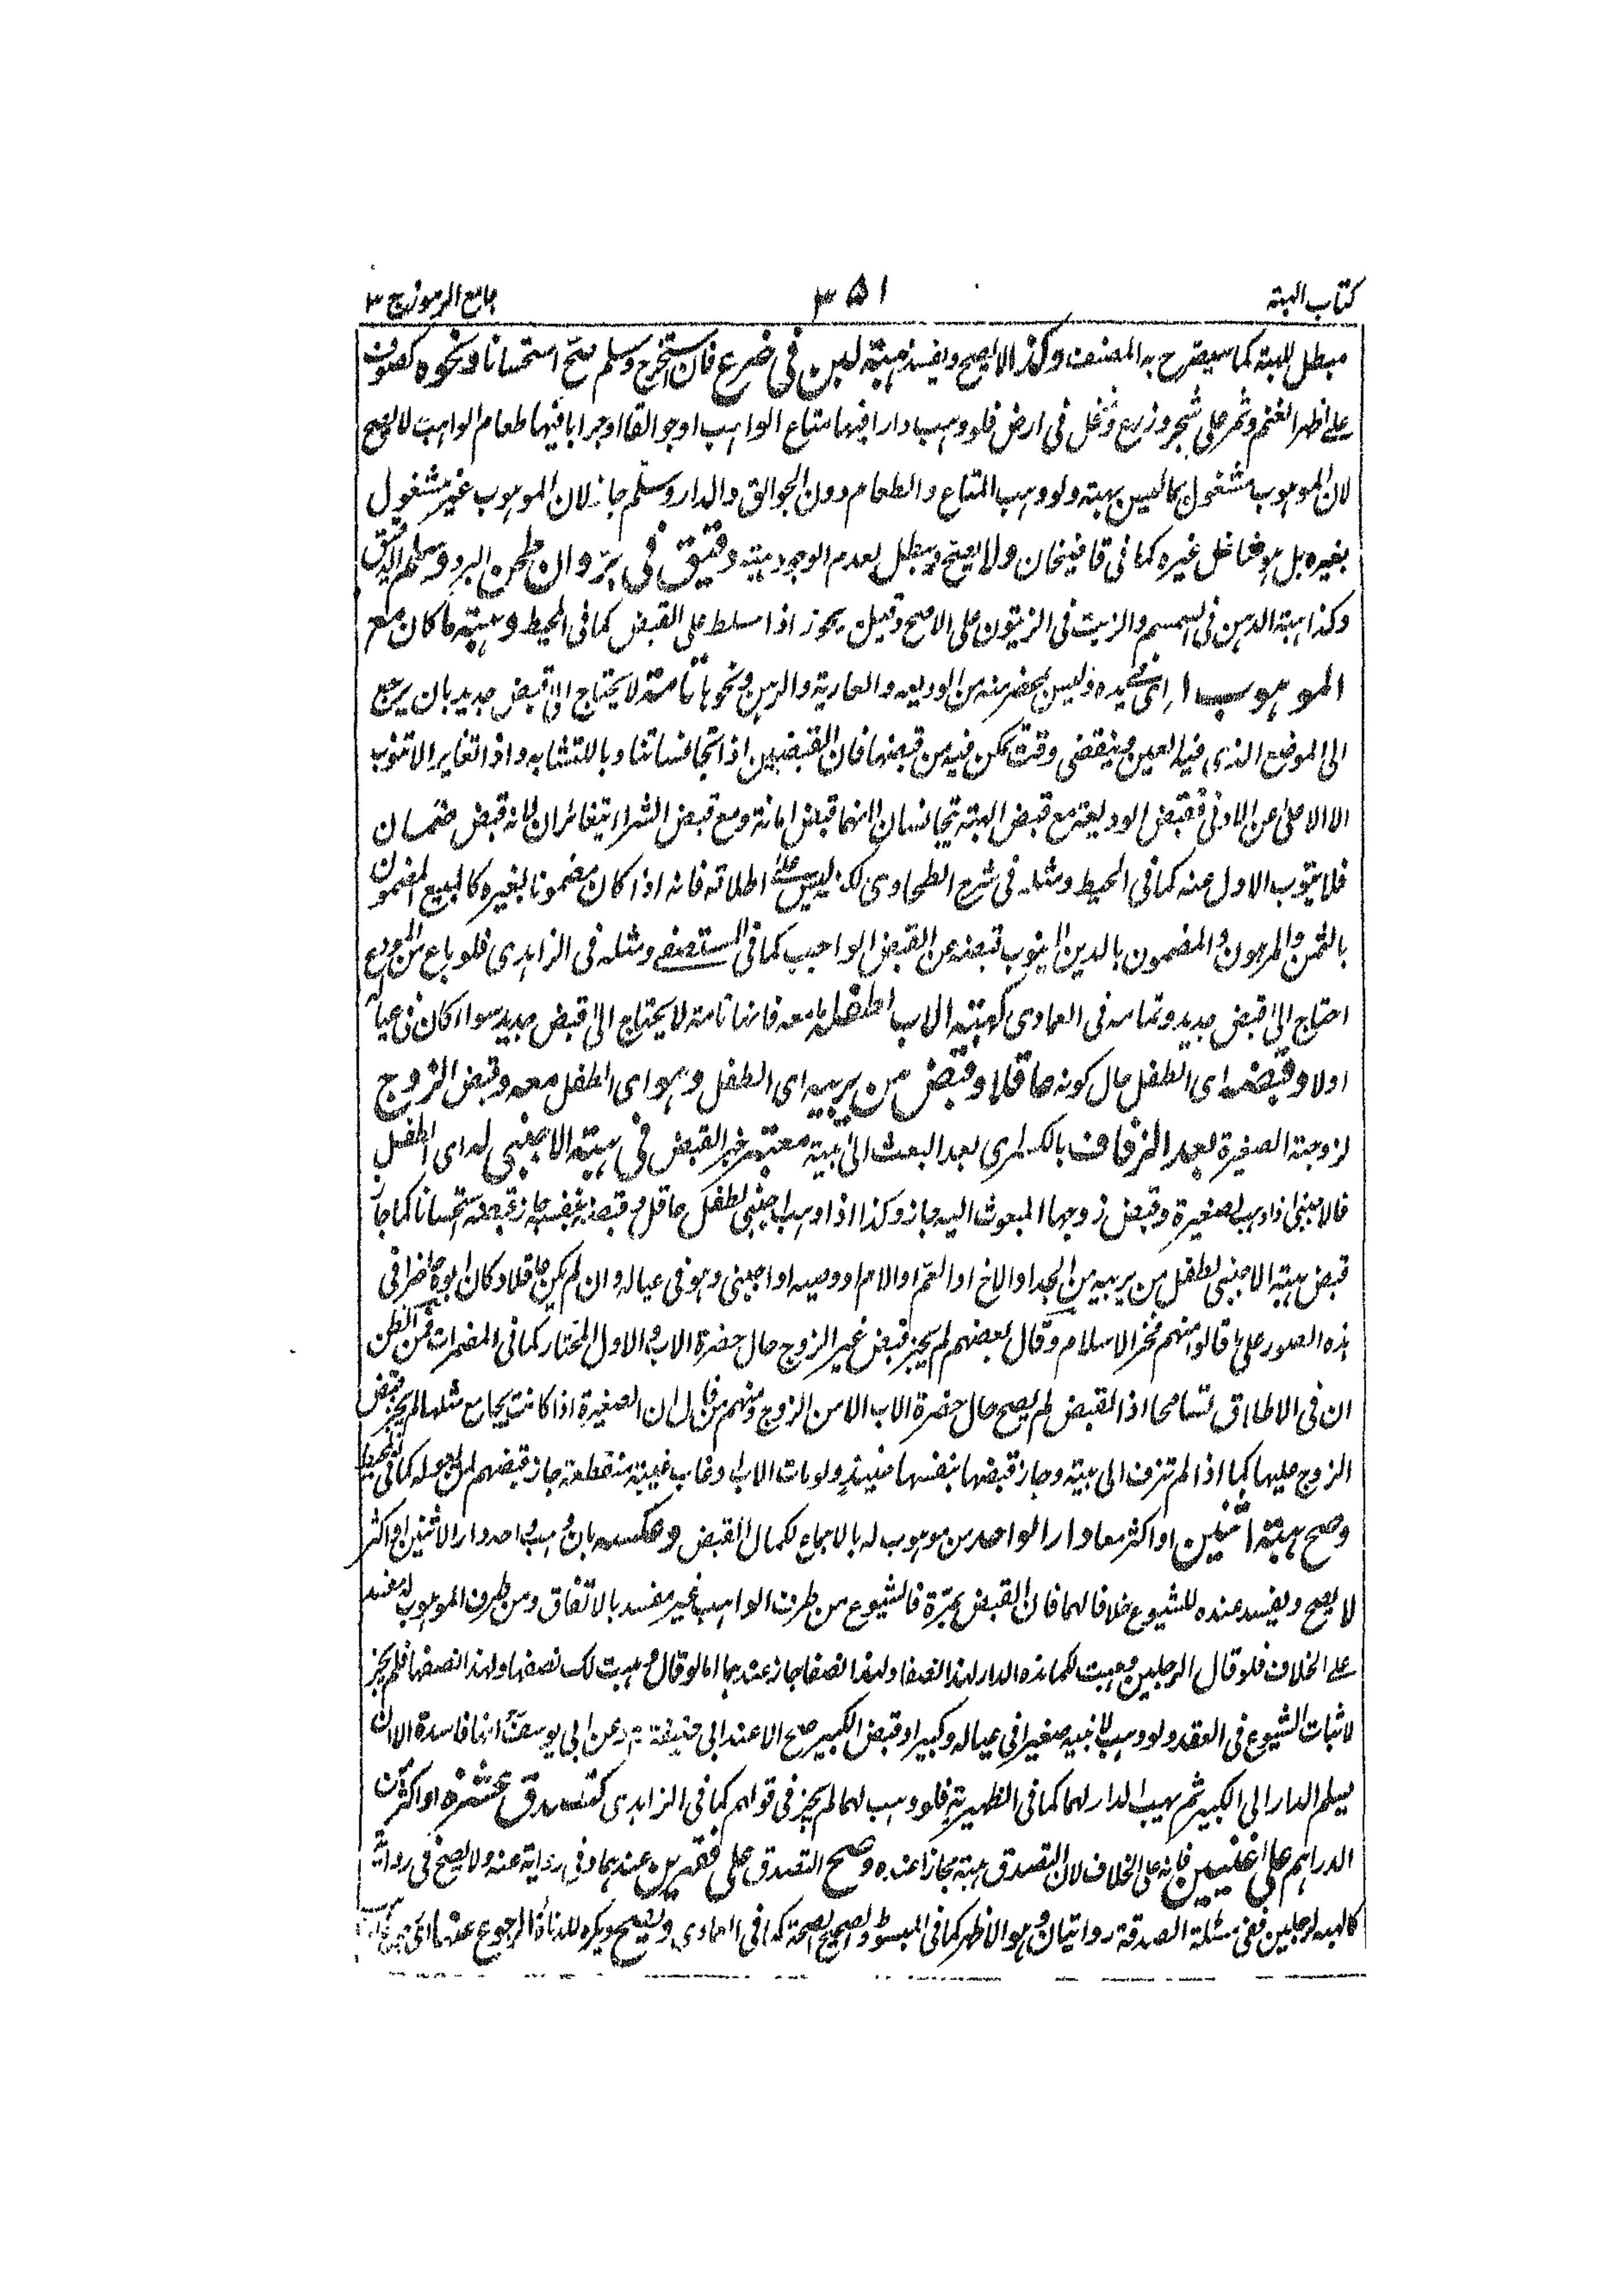 كتاب الهبة ۳۵۱ جامع الرموز ج ۳
مبطل للهبة كما سيصرح به المصنف وكذا لا يصح ويفسد هبة لبن في ضرع فان استخرج وسلم صح استحسانا ونحوه كصوف
على ظهر الغنم وثمر على شجر وزرع ونخل في ارض فلو وهب دارا فيها متاع الواهب او جوالقا او جرابا فيها طعام الواهب لا يصح
لان الموهوب مشغول بما ليس بهبة ولو وهب المتاع والطعام دون الجوالق والدار وسلم جاز لان الموهوب غير مشغول
بغيره بل هو شاغل غيره كما في قاضيخان ولا يصح ويبطل لعدم الوجود هبة دقيق في بر وان طحن البر وسلم الدقيق
وكذا هبة الدهن في السمسم والزيت في الزيتون على الاصح وقيل يجوز اذا سلط على القبض كما في المحيط وهبة ما كان مع
الموهوب له اى في يده وليس بحضرته من الوديعه والعارية والرهن ونحوها تامة لا يحتاج الى قبض جديد بان يرجع
الى الموضع الذى فيه العين وينقضى وقت يمكن فيه من قبضها فان القبضين اذا تجانسا تناوبا للتشابه واذا تغايرا لا تنوب
الا الاعلى عن الادنى فقبض الوديعة مع قبض الهبة يتجانسان لانهما قبض امانة ومع قبض الشراء يتغائران لانه قبض ضمان
فلا ينوب الاول عنه كما في المحيط ومثله في شرح الطحاوى لكنه ليس على اطلاقه فانه اذا كان مضمونا بغيره كالمبيع المضمون
بالثمن والمرهون المضمون بالدين لا ينوب قبضه عن القبض الواجب كما في المستصفى ومثله في الزاهدى فلو باع من المودع
احتاج الى قبض جديد وتمامه في العمادى كهبة الاب لطفله ما معه فانها تامة لا يحتاج الى قبض جديد سواء كان في عياله
اولا وقبضه اى الطفل حال كونه عاقلا وقبض من يربيه اى الطفل وهو اى الطفل معه وقبض الزوج
لزوجته الصغيرة بعد الزفاف بالكسر اى بعد البعث الى بيته معتبر خبر القبض في هبة الاجنبي له اى الطفل
فالاجنبى اذا وهب لصغيرة وقبض زوجها المبعوث اليه جاز وكذا اذا وهب اجنبى لطفل عاقل وقبضه بنفسه جاز قبضه استحسانا كما جاز
قبض هبة الاجنبي لطفل من يربيه من الجد او الاخ او العم او الام او وصيه او اجنبى وهو في عياله وان لم يكن عاقلا وكان ابوه حاضرا في
هذه الصور على ما قالوا منهم فخر الاسلام وقال بعضهم لم يجز قبض غير الزوج حال حضرة الاب والاول المختار كما في المضمرات فمن الظن
ان في الاطلاق تسامحا اذ القبض لم يصح حال حضرة الاب الا من الزوج ومنهم من قال ان الصغيرة اذا كانت يجامع مثلها لم يجز قبض
الزوج عليها كما اذا لم تزف الى بيته وجاز قبضها بنفسها حينئذ ولو مات الاب او غاب غيبة منقطعة جاز قبضهم كما في المحيط
وصح هبة اثنين او اكثر معا دار الواحد من موهوب له بالاجماع لكمال القبض وعكسه بان وهب واحد دارا لاثنين او اكثر
لا يصح ويفسد عنده للشيوع خلافا لهما فان القبض بمرة فالشيوع من طرف الواهب غير مفسد بالاتفاق ومن طرف الموهوب له مفسد
على الخلاف فلو قال الرجلين وهبت لكما هذه الدار لهذا النصف ولهذا النصف جاز عندهما اما لو قال وهبت لك نصفها ولهذا نصفها فلم يجز
لاثبات الشيوع في العقد ولو وهب لابنيه صغيرا في عياله وكبيرا وقبض الكبير صح الا عند ابى حنيفة وعن ابى يوسف انها فاسدة الا ان
يسلم الدار الى الكبير ثم يهب الدار لهما كما في الظهيرية فلو وهب لهما لم يجز في قولهم كما في الزاهدى كتصدق عشرة او اكثر من
الدراهم على غنيين فانه على الخلاف لان التصدق هبة مجازا عنده وصح التصدق على فقيرين عندهما وفى رواية عنه ولا يصح في رواية
كالهبة لرجلين ففى مسئلة الصدقة روايتان وهو الاظهر كما في المبسوط والصحيح الصحة كما في العمادى ويصح ويكره للدناءة الرجوع عنها